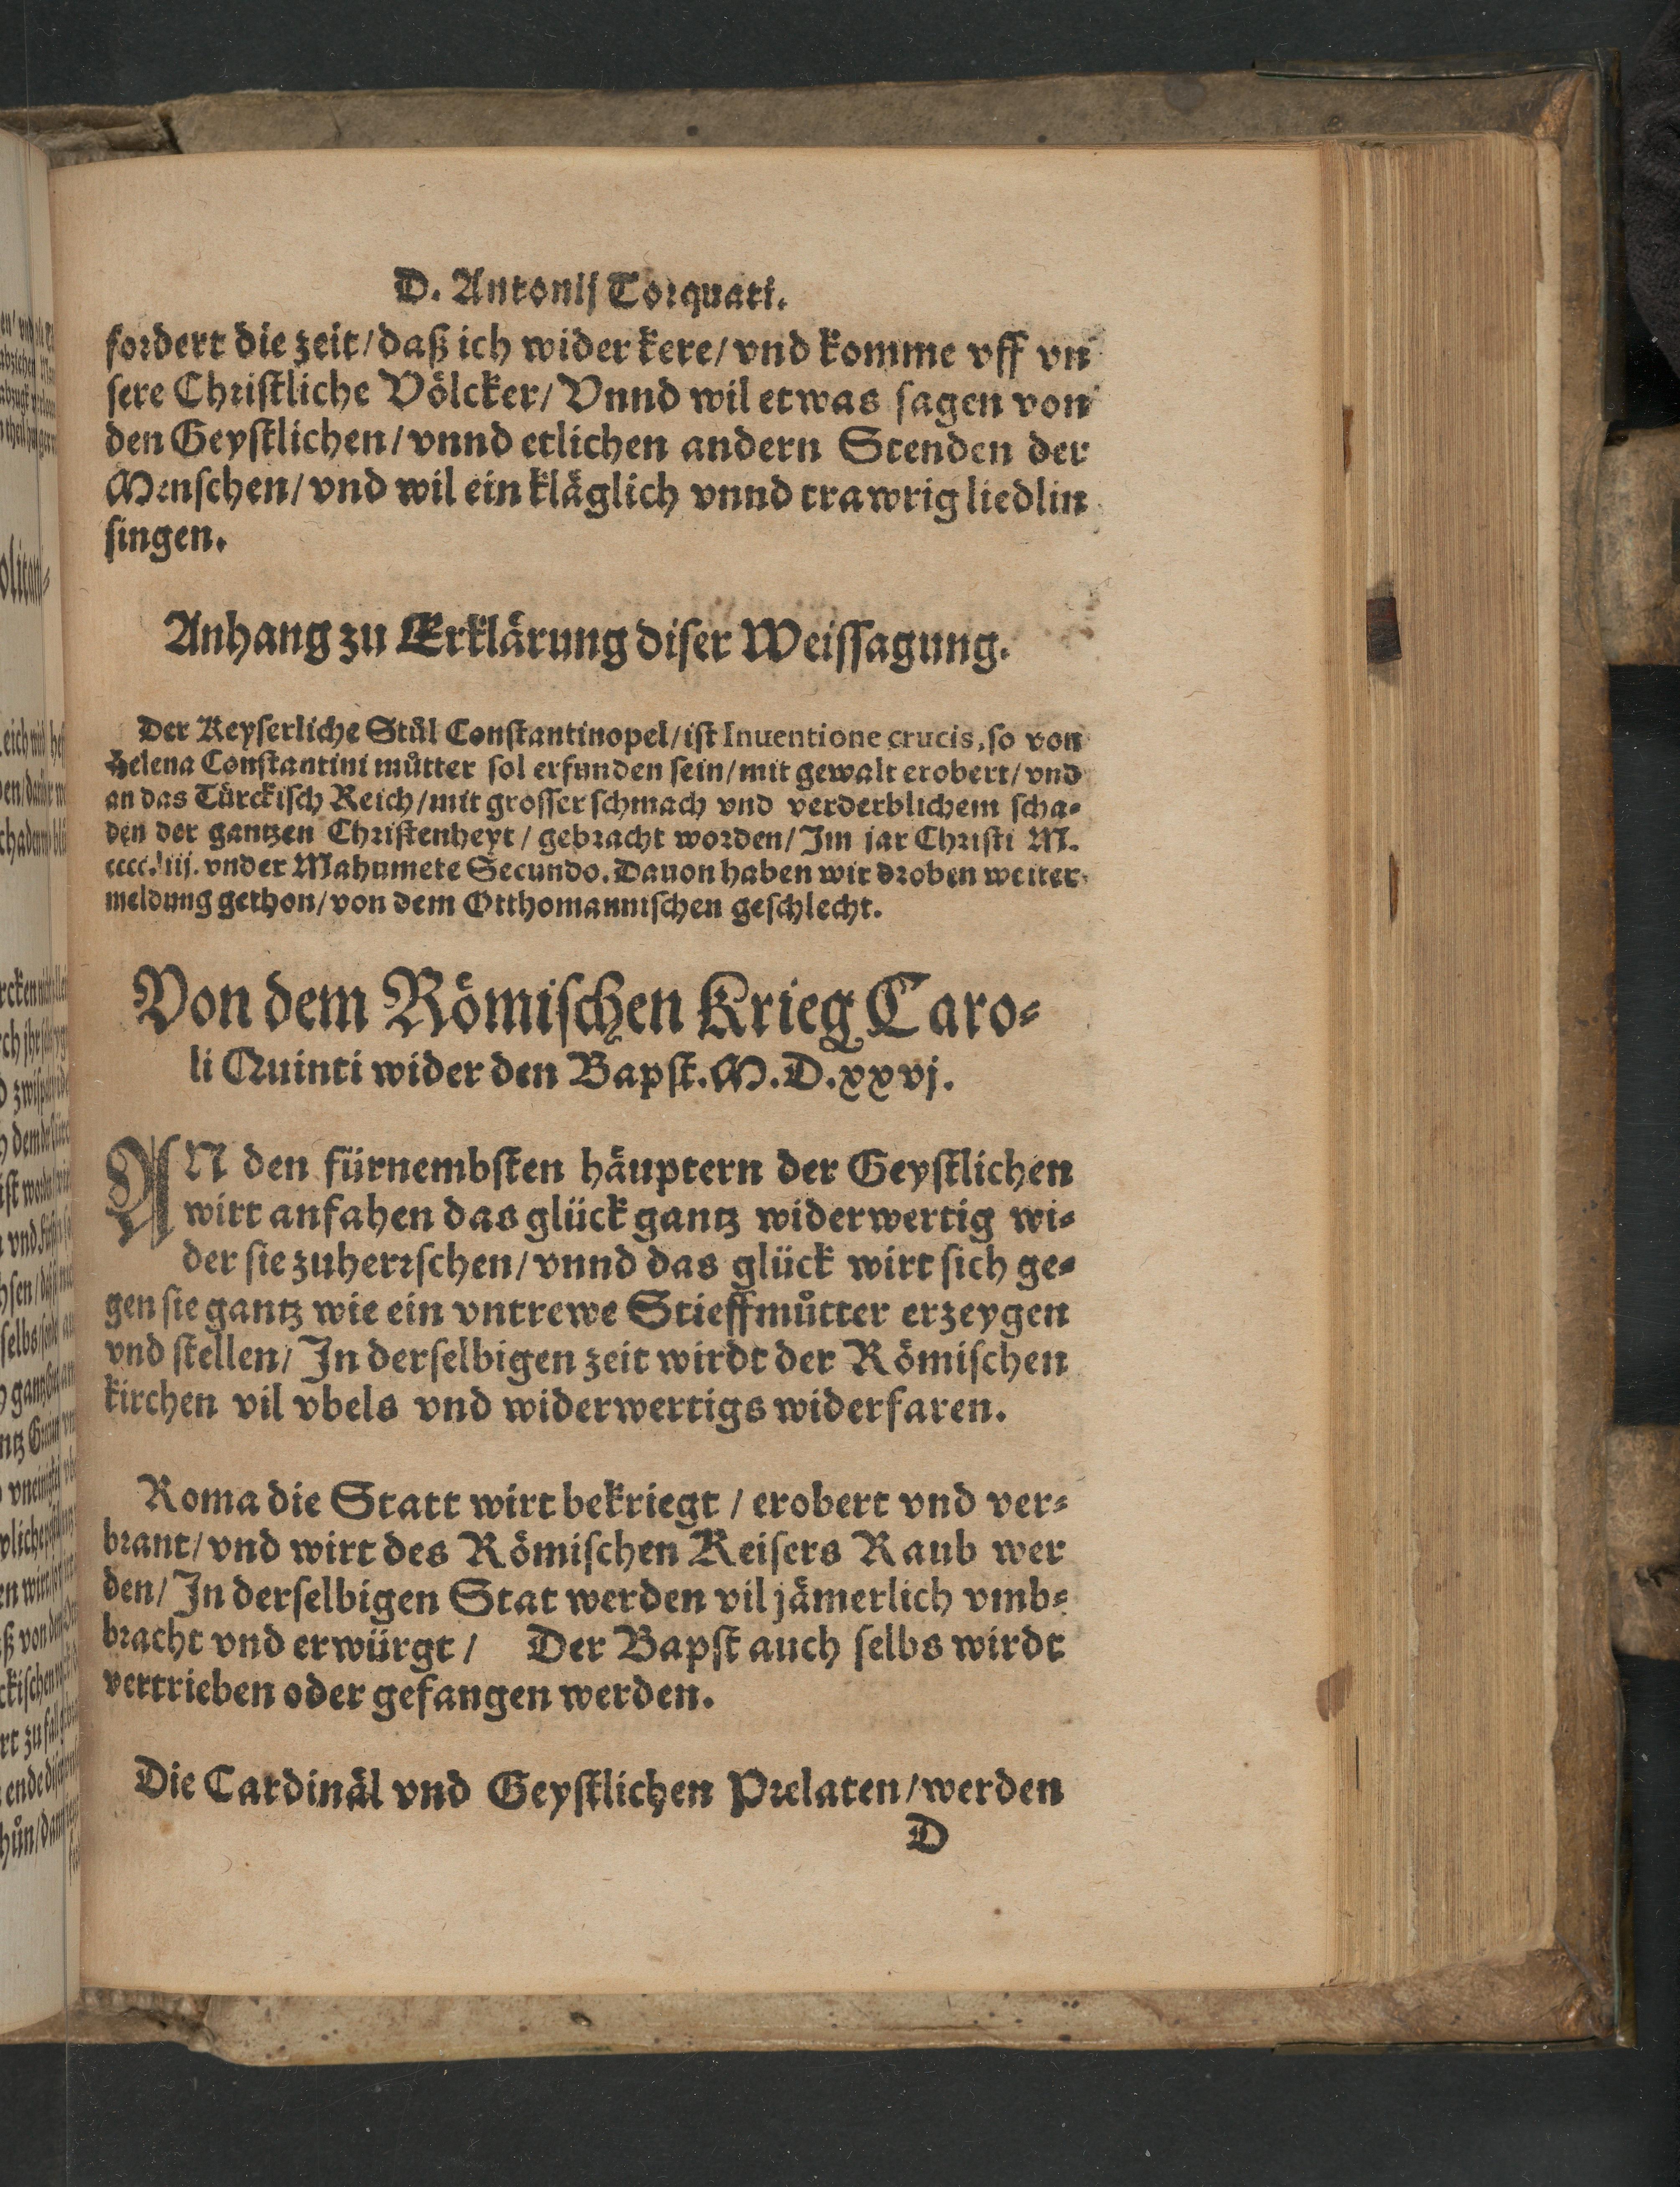 D. Antonij Torquati.
fordert die zeit/daß ich wider kere/vnd komme vff vn
sere Christliche Völcker/Vnnd wil etwas sagen von
den Geystlichen/vnnd etlichen andern Stenden der
Menschen/vnd wil ein kläglich vnnd trawrig liedlin
singen.
Anhang zu Erklärung diser Weissagung.
Der Keyserliche Stůl Constantinopel/ist Inuentione crucis, so von
Helena Constantini můtter sol erfunden sein/mit gewalt erobert/vnd
an das Türckisch Reich/mit grosser schmach vnd verderblichem scha-
den der gantzen Christenheyt/gebracht worden/Im jar Christi M.
cccc.liij. vnder Mahumete Secundo. Dauon haben wir droben weiter
meldung gethon/von dem Otthomannischen geschlecht.
Von dem Römischen Krieg Caro-
li Quinti wider den Bapst. M.D.xxvj.
AN den fürnembsten häuptern der Geystlichen
wirt anfahen das glück gantz widerwertig wi-
der sie zuherrschen/vnnd das glück wirt sich ge-
gen sie gantz wie ein vntrewe Stieffmůtter erzeygen
vnd stellen/In derselbigen zeit wirdt der Römischen
kirchen vil vbels vnd widerwertigs widerfaren.
Roma die Statt wirt bekriegt/erobert vnd ver-
brant/vnd wirt des Römischen Keisers Raub wer
den/In derselbigen Stat werden vil jämerlich vmb-
bracht vnd erwürgt/ Der Bapst auch selbs wirdt
vertrieben oder gefangen werden.
Die Cardinäl vnd Geystlichen Prelaten/werden
D